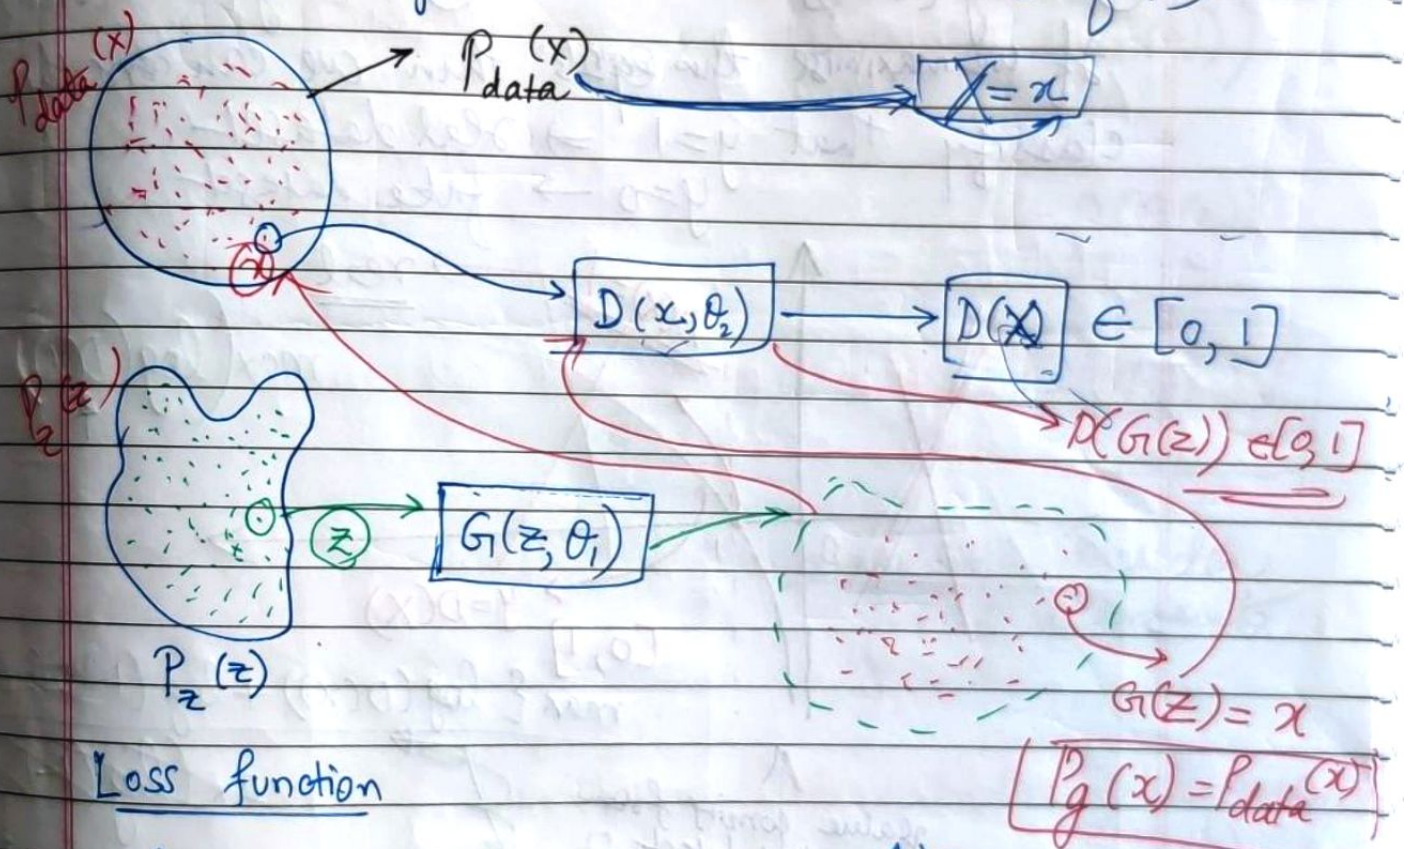 P_data(x)
P_data(x)
X = x
x
D(x, θ₂)
D(X) ∈ [0, 1]
D(G(z)) ∈ [0, 1]
P_z(z)
z
G(z, θ₁)
P_z(z)
G(z) = x
P_g(x) = P_data(x)
Loss function